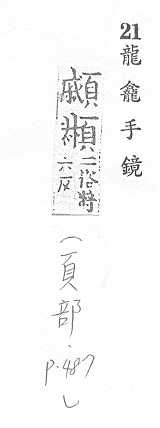 21 龍龕手鏡
顣
二俗將
六反
(頁部.p.487)